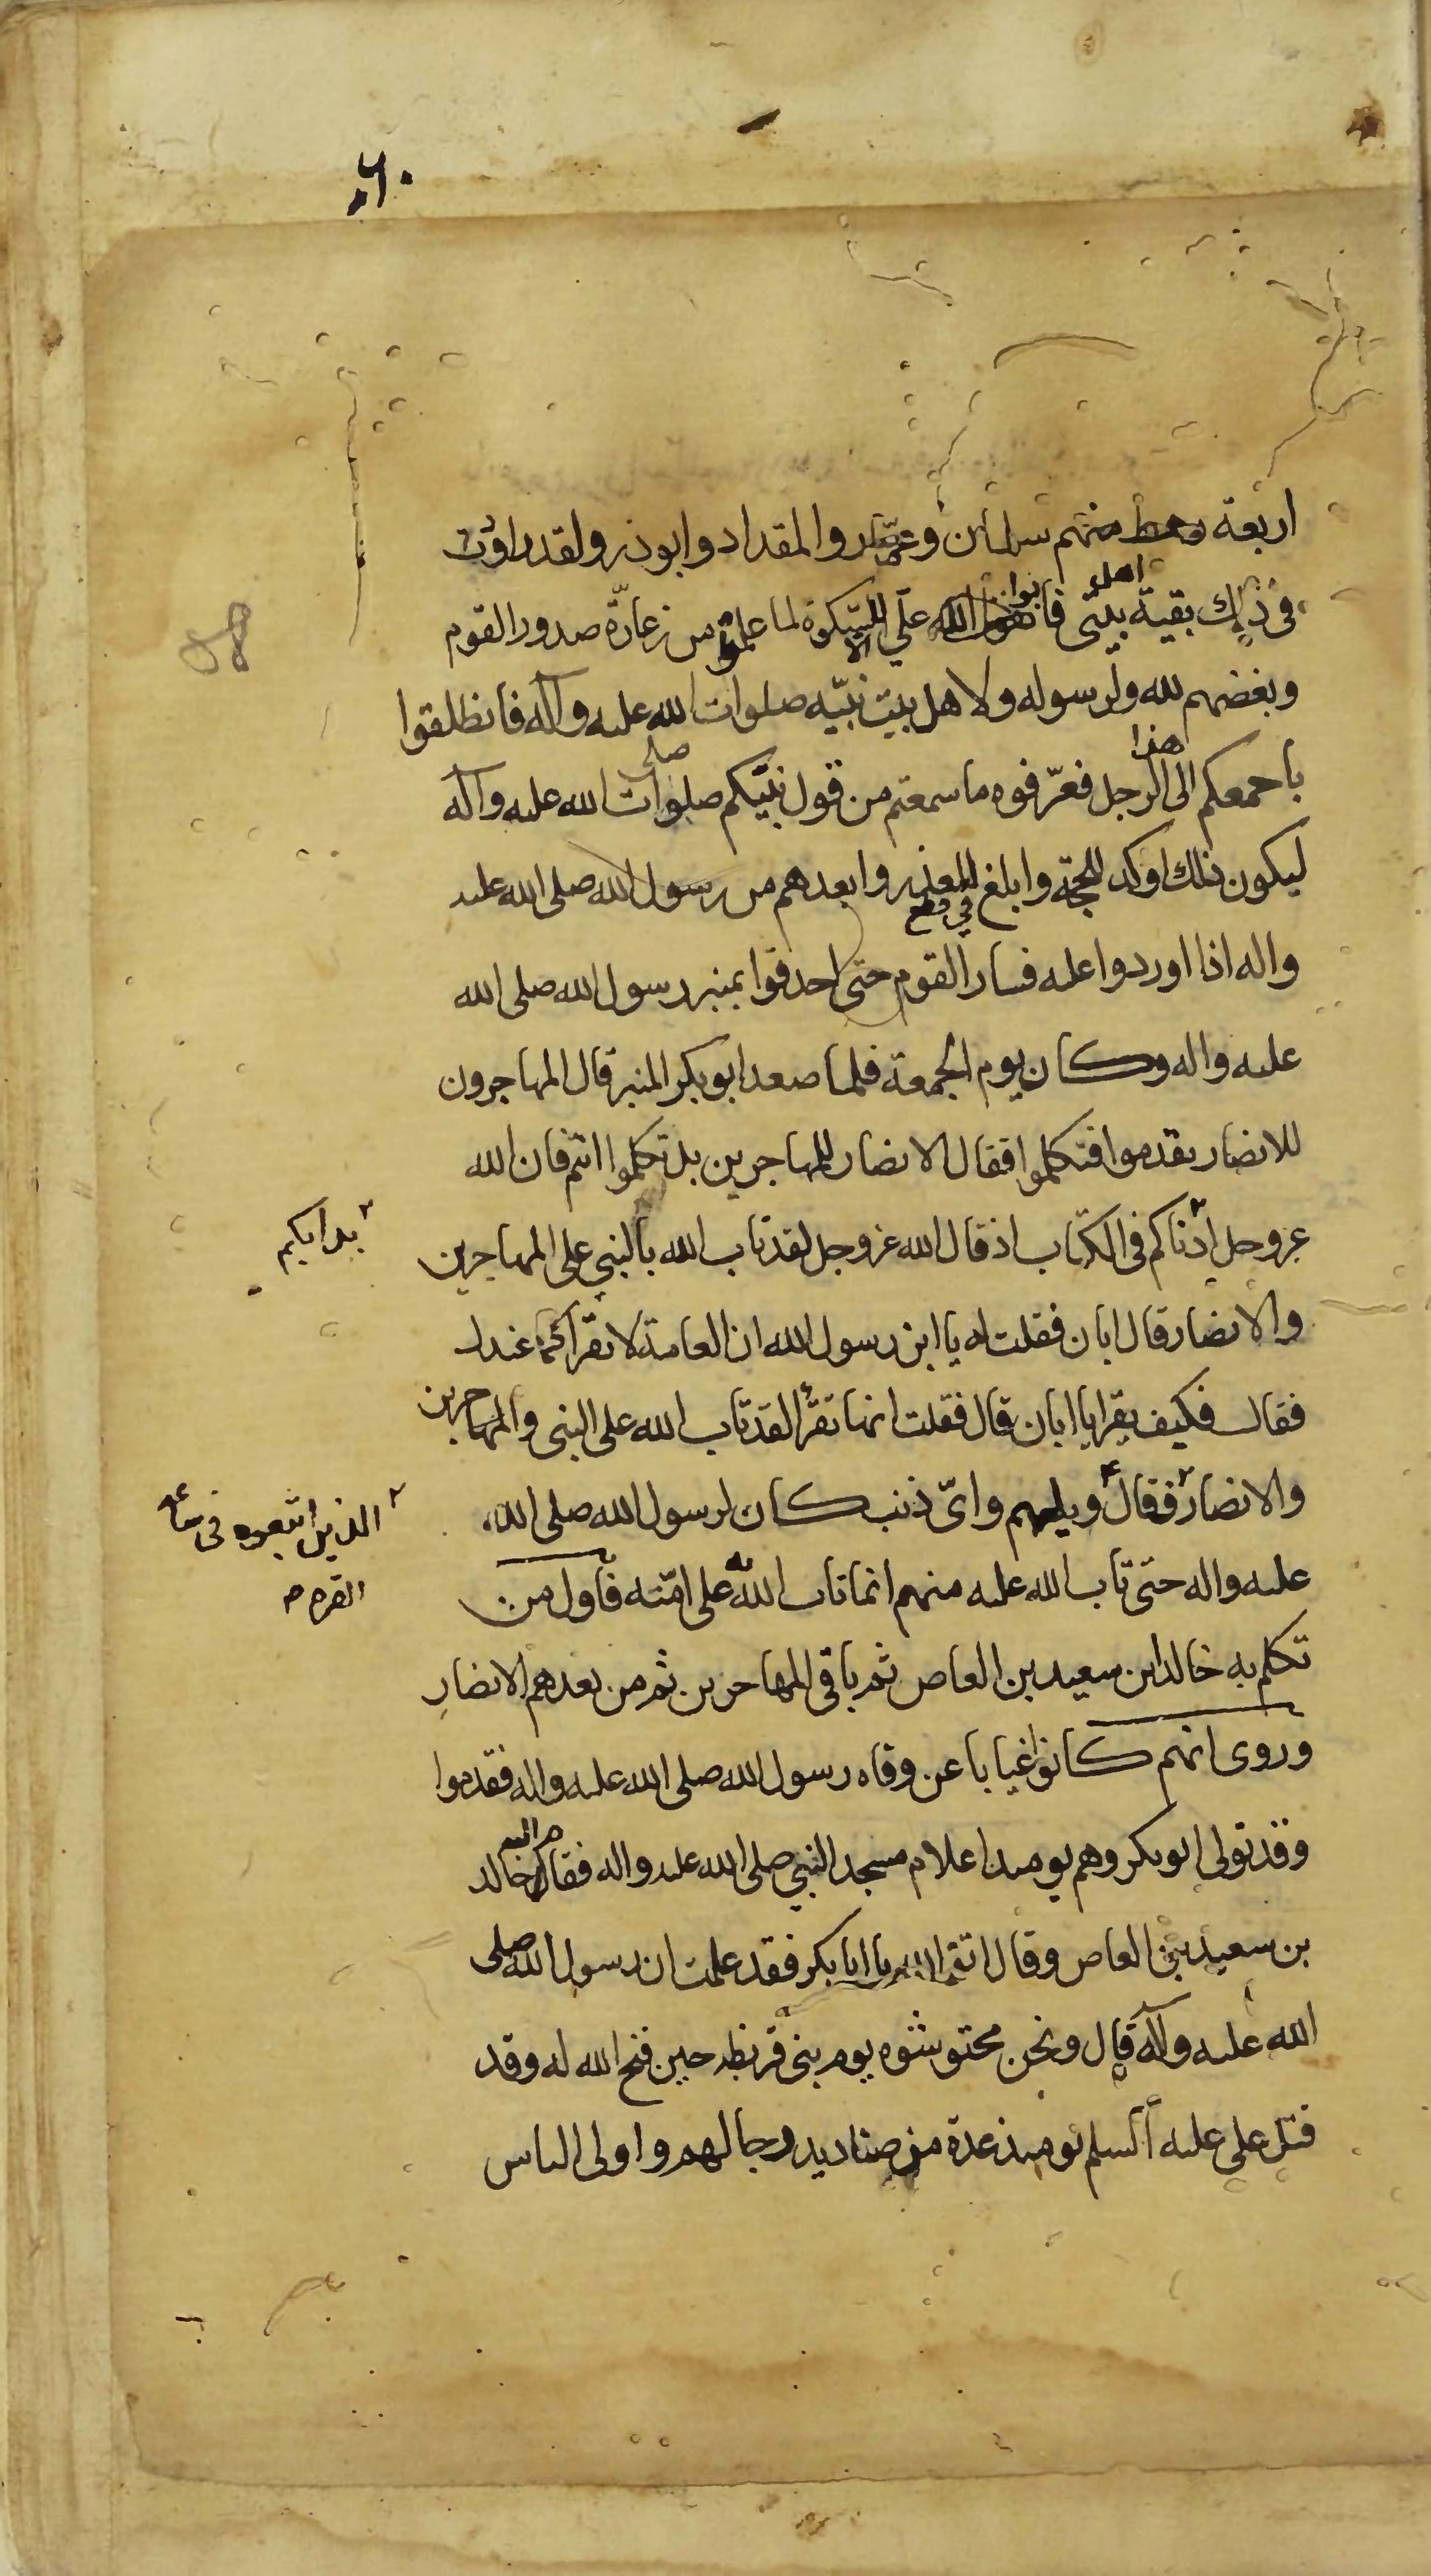 اربعة رهط منهم سلمان وعمّار والمقداد وابوذر ولقد راودت
فى ذلك بقية اهل بيتى فابوا علّي الا السكوة لما علموا من زعارّة صدور القوم
وبغضهم لله ولرسوله ولاهل بيت نبيّه صلوات الله عليه وآله فانطلقوا
باجمعكم الى هذا الرجل فعرّفوه ما سمعتم من قول نبيّكم صلى الله عليه وآله
ليكون ذلك اوكد للحجة وابلغ للعذر وابعدهم من رسول الله صلى الله عليه
واله اذا اوردوا عليه فسار القوم حتى احدقوا بمنبر رسول الله صلى الله
عليه واله وكان يوم الجمعة فلما صعد ابوبكر المنبر قال المهاجرون
للانصار تقدموا فتكلموا فقال الانصار للمهاجرين بل تكلموا انتم فان الله
عز وجل ادناكم فى الكتاب اذ قال الله عز وجل لقد تاب الله بالنبي على المهاجرين
بدأبكم
والانصار قال ابان فقلت له يا ابن رسول الله ان العامة لا تقرأ كما عندك
فقال فكيف يقرا يا ابان قال فقلت انها تقرأ لقد تاب الله على النبى والمهاجرين
والانصار فقال ويلهم واىّ ذنب كان لرسول الله صلى الله
الذين اتبعوه فى ساعة
العسرة
عليه واله حتى تاب الله عليه منهم انما تاب الله به على امّته فاول من
تكلم به خالد ابن سعيد بن العاص ثم باقى المهاجرين ثم من بعدهم الانصار
وروى انهم كانوا غيابا عن وفاه رسول الله صلى الله عليه واله فقدموا
وقد تولى ابوبكر وهم يومئذ اعلام مسجد النبي صلى الله عليه واله فقام اليه خالد
بن سعيد بن العاص وقال اتق الله يا ابا بكر فقد علمت ان رسول الله صلى
الله عليه وآله قال ونحن محتوشوه يوم بنى قريظه حين فتح الله له وقد
قتل على عليه السلم يومئذ عدة من صناديد رجالهم واولى الباس